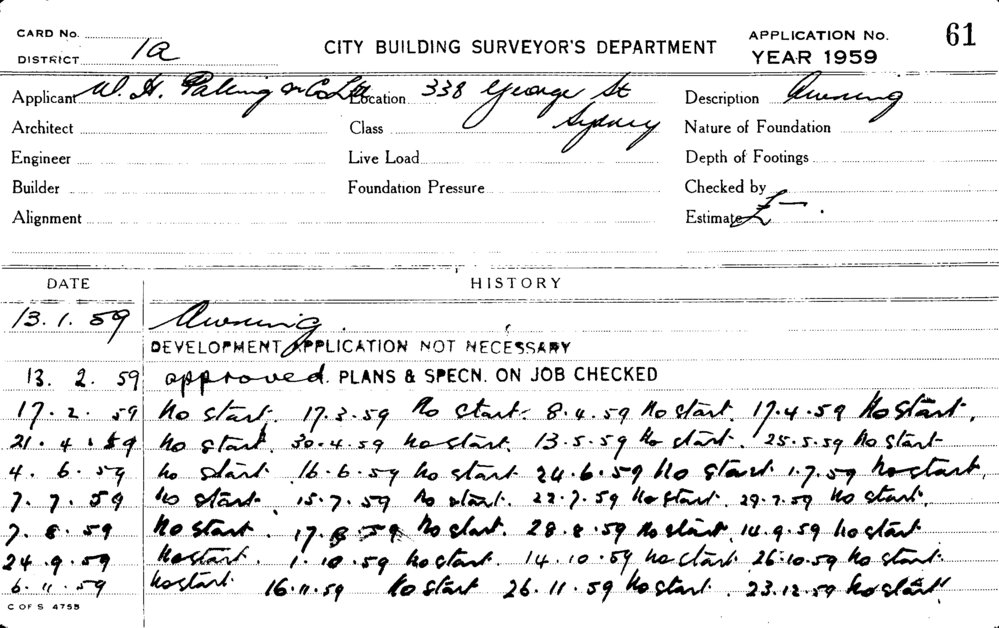 CARD No.
DISTRICT 1a
CITY BUILDING SURVEYOR'S DEPARTMENT
APPLICATION No. 61
YEAR 1959
Applicant W. H. Paling & Co Ltd Location 338 George St Description Awning
Architect Class Sydney Nature of Foundation
Engineer Live Load Depth of Footings
Builder Foundation Pressure Checked by
Alignment Estimate £ — .
DATE HISTORY
13. 1. 59 Awning.
DEVELOPMENT APPLICATION NOT NECESSARY
13. 2. 59 approved. PLANS & SPECN. ON JOB CHECKED
17. 2. 59 No start. 17.3.59 No start. 8.4.59 No start. 17.4.59 No start.
21. 4. 59 No start. 30.4.59 no start. 13.5.59 No start. 25.5.59 No start
4. 6. 59 no start. 16.6.59 No start 24.6.59 No start 1.7.59 no start.
7. 7. 59 No start. 15.7.59 No start. 22.7.59 No start. 29.7.59 No start.
7. 8. 59 No start. 17.8.59 No start. 28.8.59 No start. 14.9.59 no start
24. 9. 59 No start. 1.10.59 no start. 14.10.59 no start 26.10.59 No start
6. 11. 59 no start. 16.11.59 No start 26.11.59 No start. 23.12.59 No start
C OF S 4755